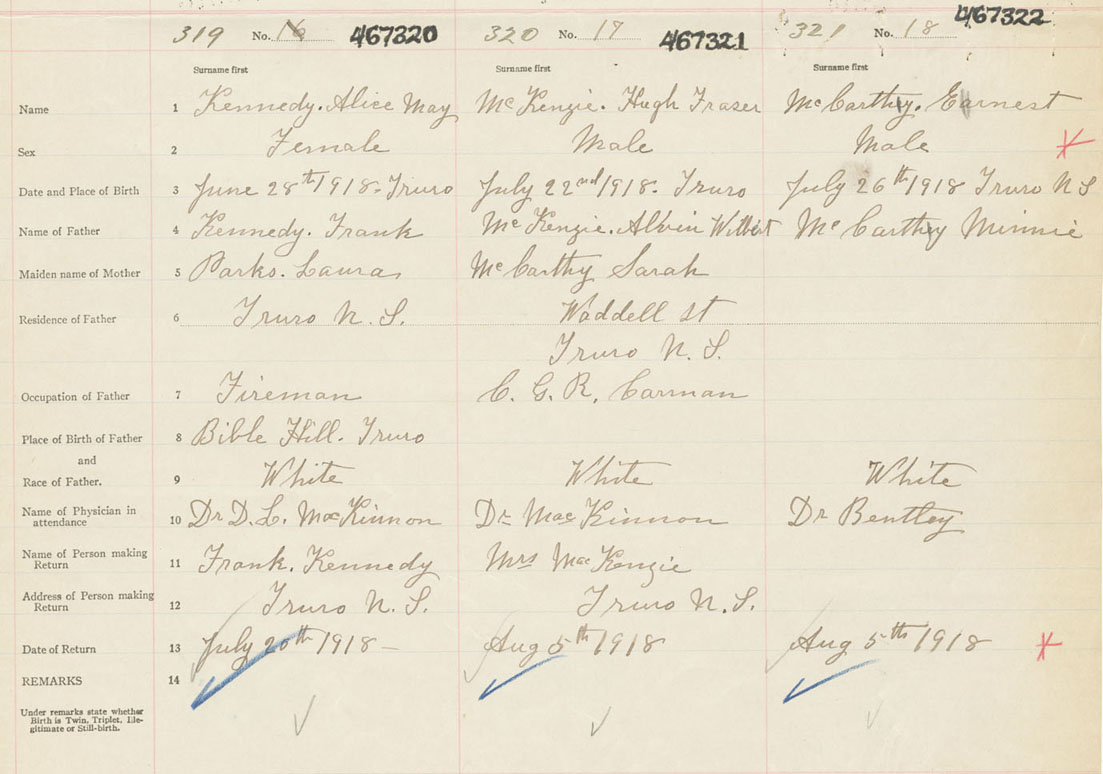 319 No. 16 467320 320 No. 17 467321 321 No. 18 467322
Surname first Surname first Surname first
Name 1 Kennedy. Alice May McKenzie. Hugh Fraser McCarthy. Earnest
Sex 2 Female Male Male
Date and Place of Birth 3 June 28th 1918. Truro July 22nd 1918. Truro July 26th 1918 Truro N S
Name of Father 4 Kennedy. Frank McKenzie. Alvin Wilbert McCarthy Minnie
Maiden name of Mother 5 Parks. Laura McCarthy Sarah
Residence of Father 6 Truro N. S. Waddell St
Truro N. S.
Occupation of Father 7 Fireman C. G. R. Carman
Place of Birth of Father 8 Bible Hill. Truro
and
Race of Father. 9 White White White
Name of Physician in attendance 10 Dr D. L. MacKinnon Dr MacKinnon Dr Bentley
Name of Person making Return 11 Frank. Kennedy Mrs MacKenzie
Address of Person making Return 12 Truro N. S. Truro N. S.
Date of Return 13 July 20th 1918 – Aug 5th 1918 Aug 5th 1918
REMARKS 14
Under remarks state whether
Birth is Twin, Triplet, Ille-
gitimate or Still-birth.